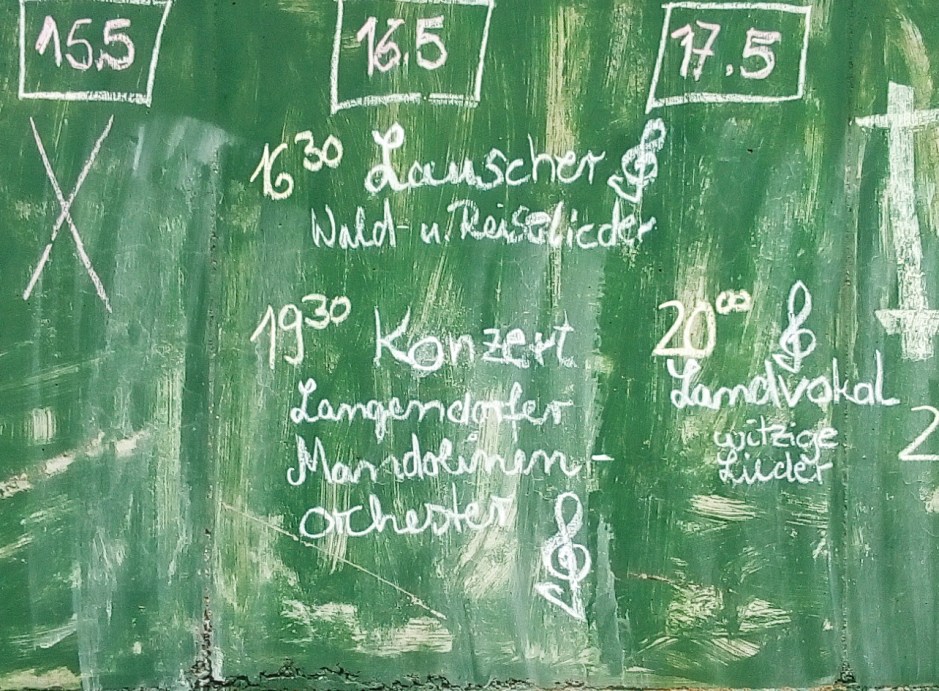 15.5
X
16.5
16³⁰ Lauscher
Wald- u. Reiselieder
19³⁰ Konzert
Langendorfer
Mandolinen-
orchester
17.5
20⁰⁰
Landvokal
witzige
Lieder
2